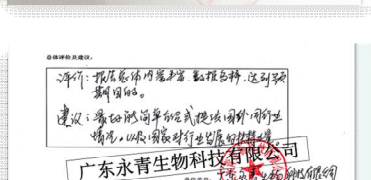 总体评价及建议：
评价：报告总体内容丰富，数据多样，达到预
期目的。
建议：最好能简单的方式提供国外同行业
情况，以及国家对行业发展的
广东永青生物科技有限公司